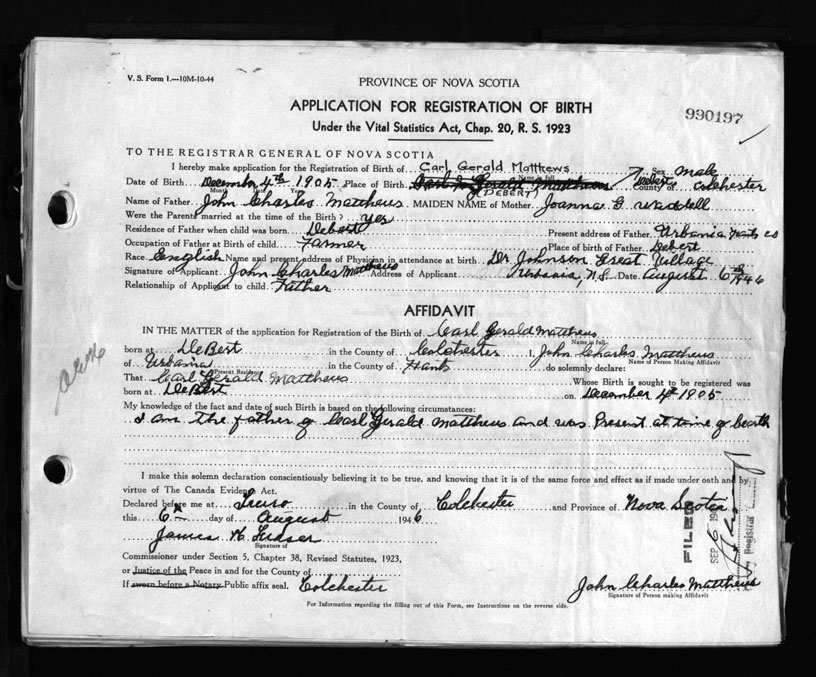 V. S. Form 1.—10M-10-44
PROVINCE OF NOVA SCOTIA
APPLICATION FOR REGISTRATION OF BIRTH
990197
Under the Vital Statistics Act, Chap. 20, R. S. 1923
TO THE REGISTRAR GENERAL OF NOVA SCOTIA
I hereby make application for the Registration of Birth of Carl Gerald Matthews Sex male
Name in full
Date of Birth December 4th 1905 Place of Birth Carl Gerald Matthews DEBERT Debert County of Colchester
Day Month Year
Name of Father John Charles Matthews MAIDEN NAME of Mother Joanna G. Waddell
Were the Parents married at the time of the Birth? Yes
Residence of Father when child was born Debert Present address of Father Urbania Hants Co
Occupation of Father at Birth of child Farmer Place of birth of Father Debert
Race English Name and present address of Physician in attendance at birth Dr Johnson Great Village
Signature of Applicant John Charles Matthews Address of Applicant Urbania, N.S. Date August 6th 1946
Relationship of Applicant to child Father
AFFIDAVIT
IN THE MATTER of the application for Registration of the Birth of Carl Gerald Matthews
Name in full
born at DeBert in the County of Colchester I, John Charles Matthews
Name of Person Making Affidavit
of Urbania in the County of Hants do solemnly declare:
Present Residence
That Carl Gerald Matthews Whose Birth is sought to be registered was
born at DeBert on December 4th 1905
My knowledge of the fact and date of such Birth is based on the following circumstances:
I am the father of Carl Gerald Matthews and was Present at time of bearth
I make this solemn declaration conscientiously believing it to be true, and knowing that it is of the same force and effect as if made under oath and by
virtue of The Canada Evidence Act.
Declared before me at Truro in the County of Colchester and Province of Nova Scotia
this 6th day of August 1946
James
Signature of
Commissioner under Section 5, Chapter 38, Revised Statutes, 1923,
or Justice of the Peace in and for the County of
If sworn before a Notary Public affix seal. Colchester
John Charles Matthews
Signature of Person making Affidavit
For Information regarding the filling out of this Form, see Instructions on the reverse side.
FILED
SEP 6 19
Registrar